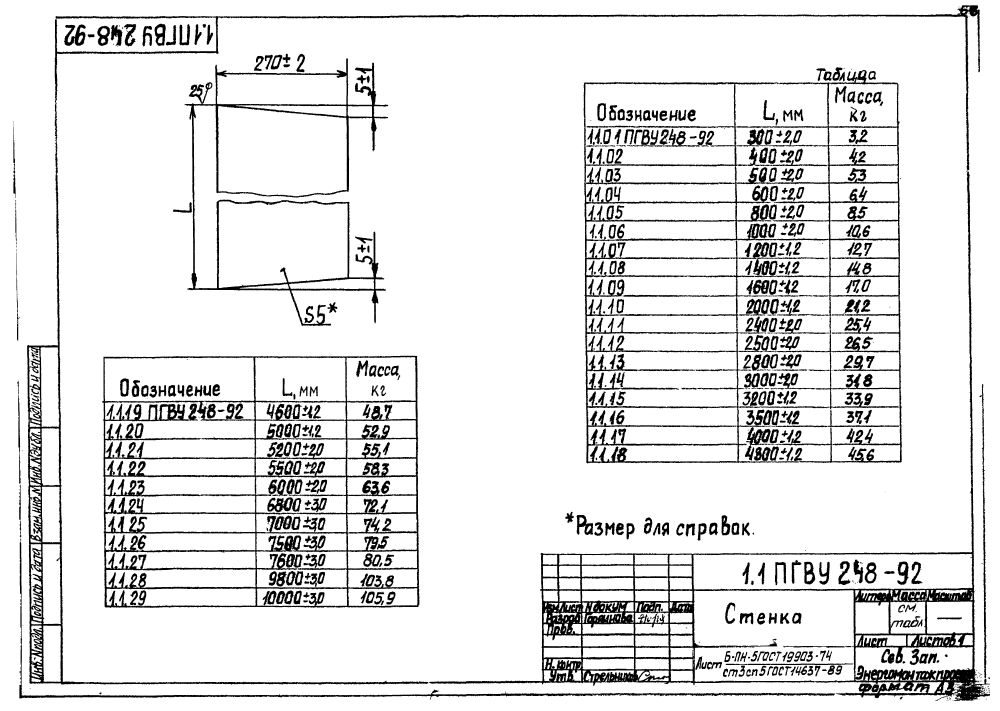 1.1 ПГВУ 248-92
270±2
5±1
25
L
5±1
S5*
Таблица
Обозначение L, мм Масса, кг
1.1.01 ПГВУ 248-92 300±2,0 3,2
1.1.02 400±2,0 4,2
1.1.03 500±2,0 5,3
1.1.04 600±2,0 6,4
1.1.05 800±2,0 8,5
1.1.06 1000±2,0 10,6
1.1.07 1200±1,2 12,7
1.1.08 1400±1,2 14,8
1.1.09 1600±1,2 17,0
1.1.10 2000±1,2 21,2
1.1.11 2400±2,0 25,4
1.1.12 2500±2,0 26,5
1.1.13 2800±2,0 29,7
1.1.14 3000±2,0 31,8
1.1.15 3200±1,2 33,9
1.1.16 3500±1,2 37,1
1.1.17 4000±1,2 42,4
1.1.18 4800±1,2 45,6
Обозначение L, мм Масса, кг
1.1.19 ПГВУ 248-92 4600±1,2 48,7
1.1.20 5000±1,2 52,9
1.1.21 5200±2,0 55,1
1.1.22 5500±2,0 58,3
1.1.23 6000±2,0 63,6
1.1.24 6800±3,0 72,1
1.1.25 7000±3,0 74,2
1.1.26 7500±3,0 79,5
1.1.27 7600±3,0 80,5
1.1.28 9800±3,0 103,8
1.1.29 10000±3,0 105,9
*Размер для справок.
1.1 ПГВУ 248-92
Изм Лист N докум Подп. Дата
Разраб
Пров.
Н. контр
Утв. Стрельников
Стенка
Литера Масса Масштаб
см. табл —
Лист Листов 1
Лист Б-ПН-5 ГОСТ 19903-74
ст3сп5 ГОСТ 14637-89
Сев. Зап.
Энергомонтажпроект
формат А3
Инв. N подл. Подпись и дата Взам. инв N Инв. N дубл. Подпись и дата